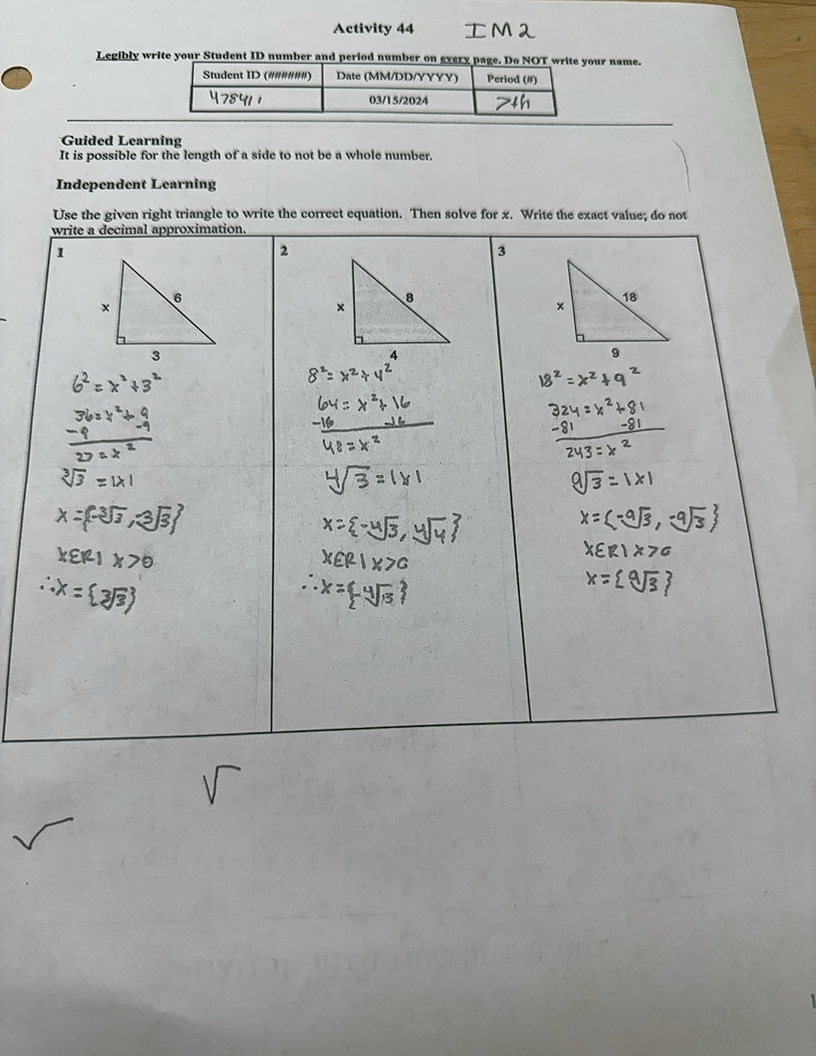 Activity 44 IM2
Legibly write your Student ID number and period number on every page. Do NOT write your name.
Student ID (######) Date (MM/DD/YYYY) Period (#)
03/15/2024 7th
Guided Learning
It is possible for the length of a side to not be a whole number.
Independent Learning
Use the given right triangle to write the correct equation. Then solve for x. Write the exact value; do not
write a decimal approximation.
1
x 6
3
6² = x² + 3²
36 = x² + 9
-9 -9
27 = x²
3√3 = |x|
x = {-3√3, -3√3}
xER| x>0
∴x = {3√3}
2
x 8
4
8² = x² + 4²
64 = x² + 16
-16 -16
48 = x²
4√3 = |x|
x = {-4√3, 4√4}
xER| x>0
∴x = {-4√3}
3
x 18
9
18² = x² + 9²
324 = x² + 81
-81 -81
243 = x²
9√3 = |x|
x = {-9√3, -9√3}
xER| x>0
x = {9√3}
√
√
1